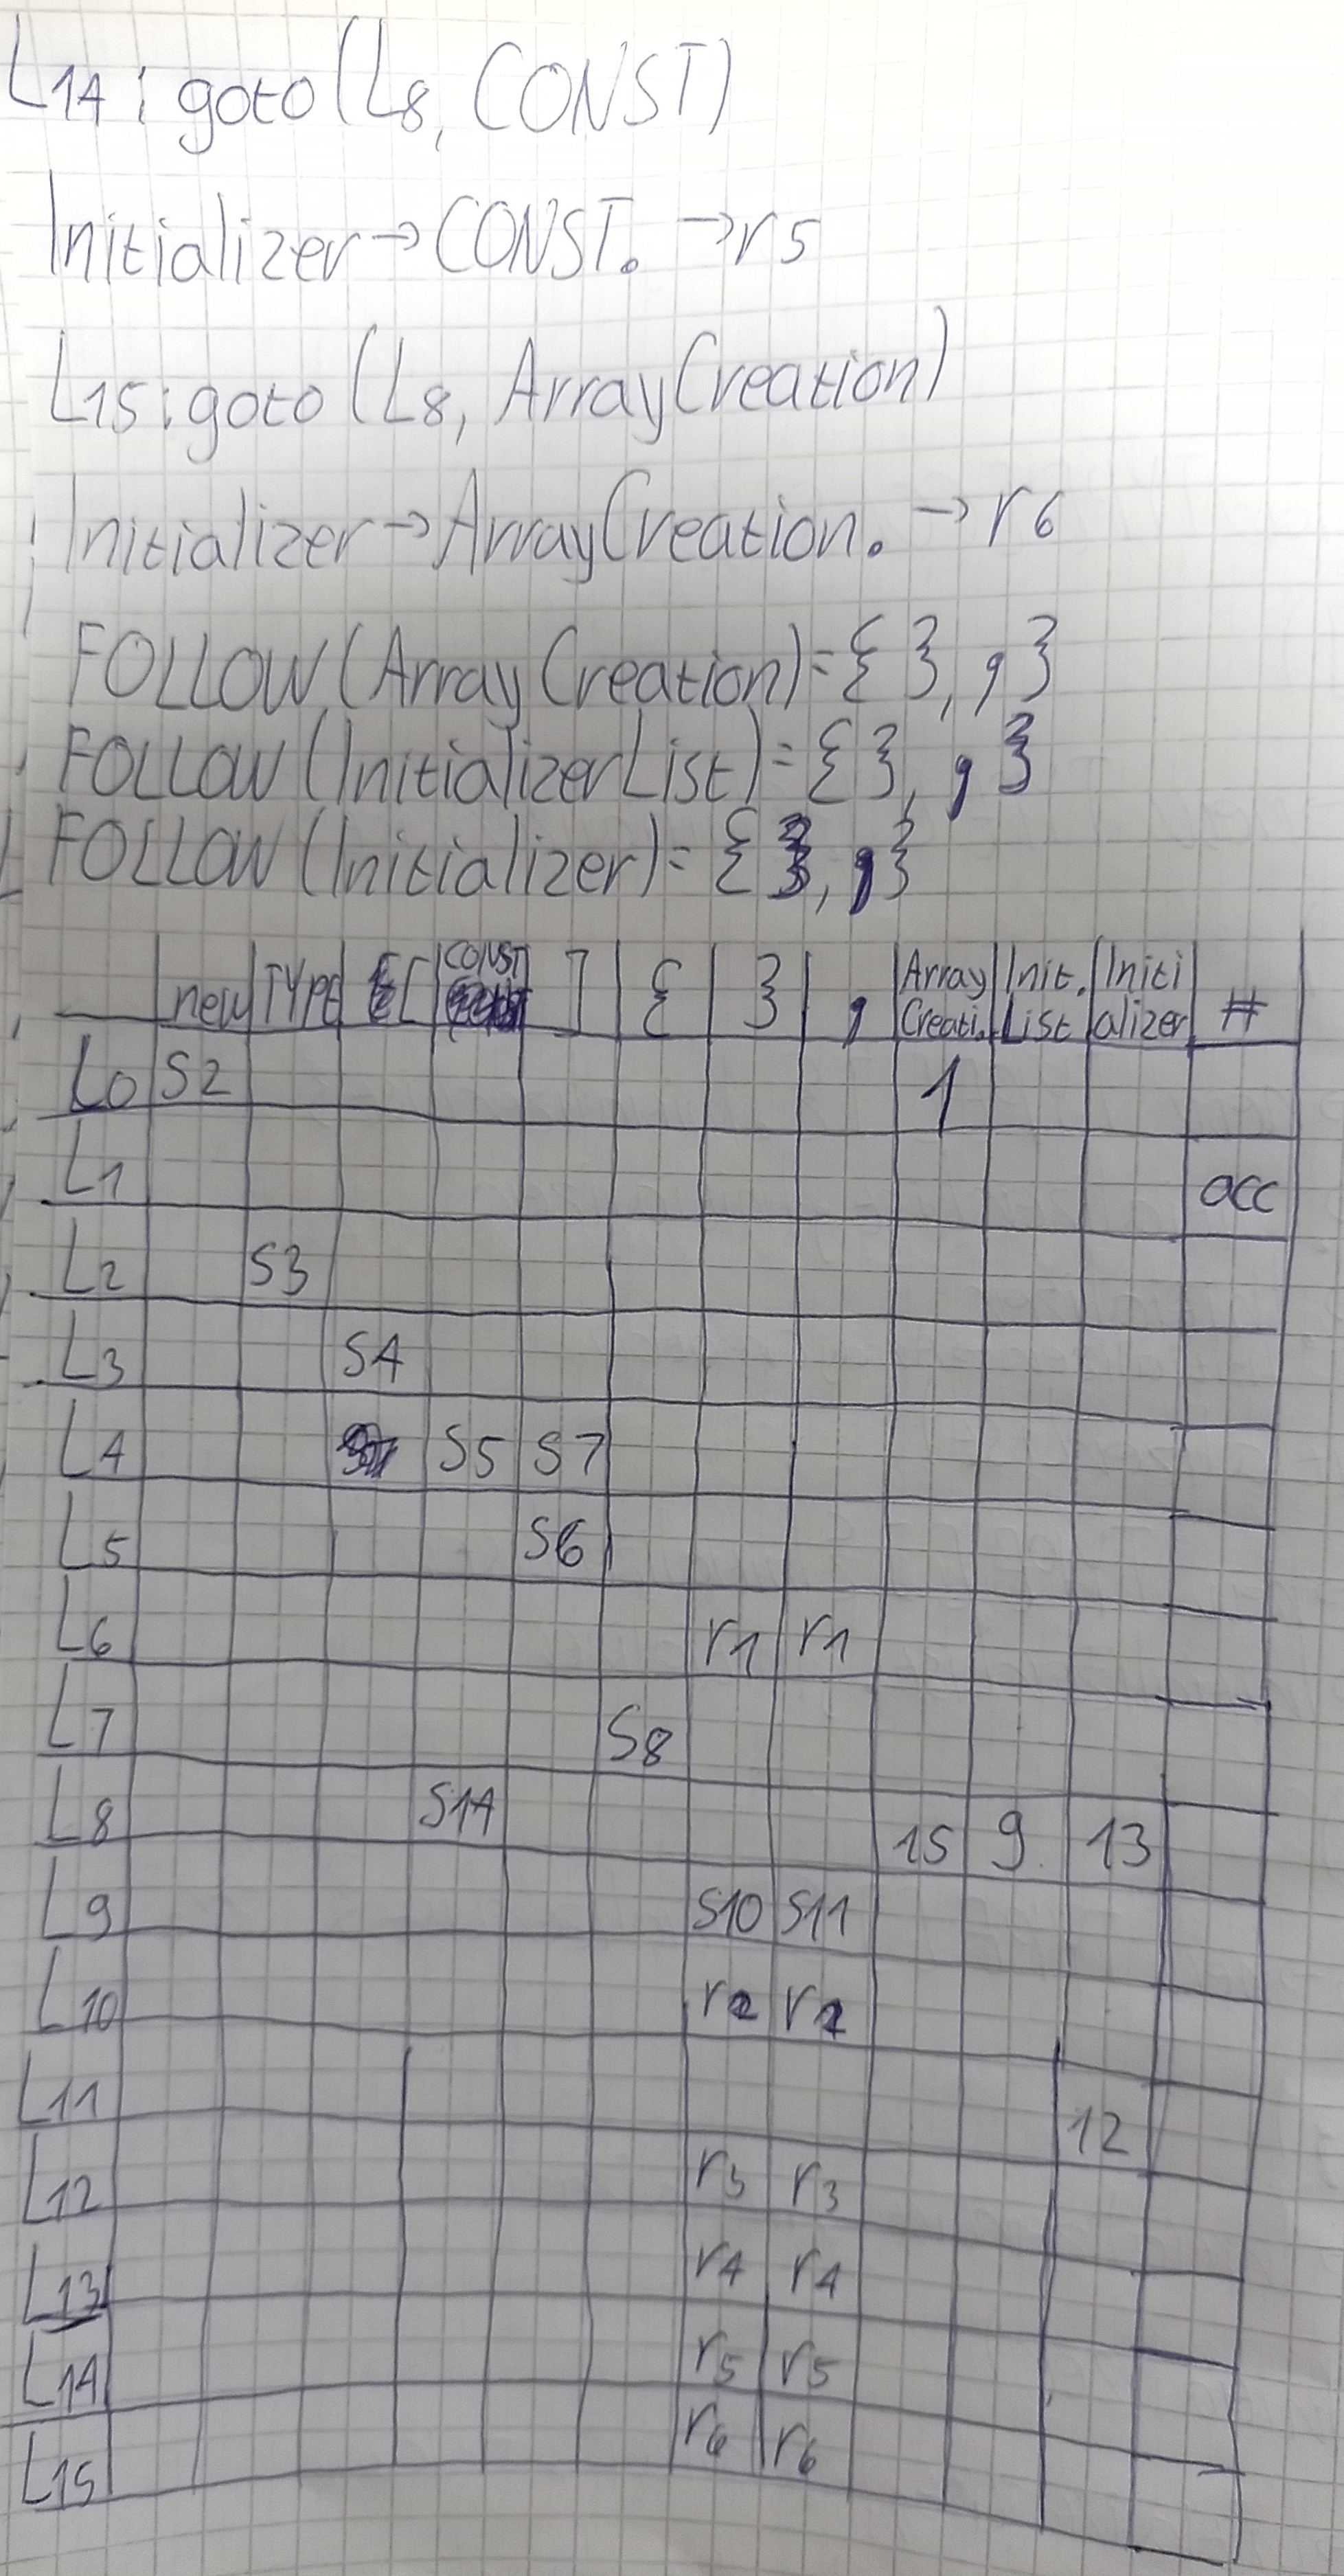 L14: goto(L8, CONST)
Initializer→CONST. →r5
L15: goto(L8, ArrayCreation)
Initializer→ArrayCreation. →r6
FOLLOW(ArrayCreation)={ }, , }
FOLLOW(InitializerList)={ }, , }
FOLLOW(Initializer)={ }, , }
new TYPE [ CONST ] { } , Array Creati. Init. List Initi alizer #
L0 S2 1
L1 acc
L2 S3
L3 S4
L4 S5 S7
L5 S6
L6 r1 r1
L7 S8
L8 S14 15 9 13
L9 S10 S11
L10 r2 r2
L11 12
L12 r3 r3
L13 r4 r4
L14 r5 r5
L15 r6 r6